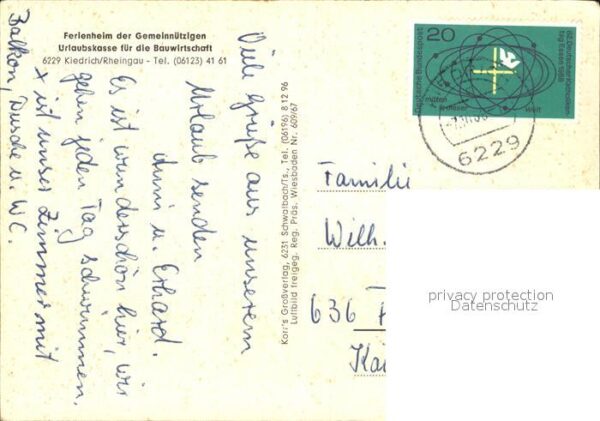 Ferienheim der Gemeinnützigen
Urlaubskasse für die Bauwirtschaft
6229 Kiedrich/Rheingau - Tel. (06123) 41 61
Viele Grüße aus unserem
Urlaub senden
Anni u. Erhard.
Es ist wunderschön hier, wir
gehen jeden Tag schwimmen.
x ist unser Zimmer mit
Balkon, Dusche u. WC.
Korr's Großverlag, 6231 Schwalbach/Ts., Tel. (06196) 8 12 96
Luftbild freigeg. Reg. Präs. Wiesbaden Nr. 609/67
20
Deutsche Bundespost
82. Deutscher Katholiken-
tag Essen 1968
mitten
in dieser
welt
6229
Familie
Wilh.
636
Kai
privacy protection
Datenschutz